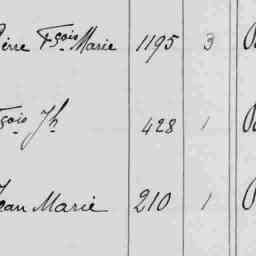 Pierre Fçois Marie 1195 3
Fçois Jh 428 1
Jean Marie 210 1